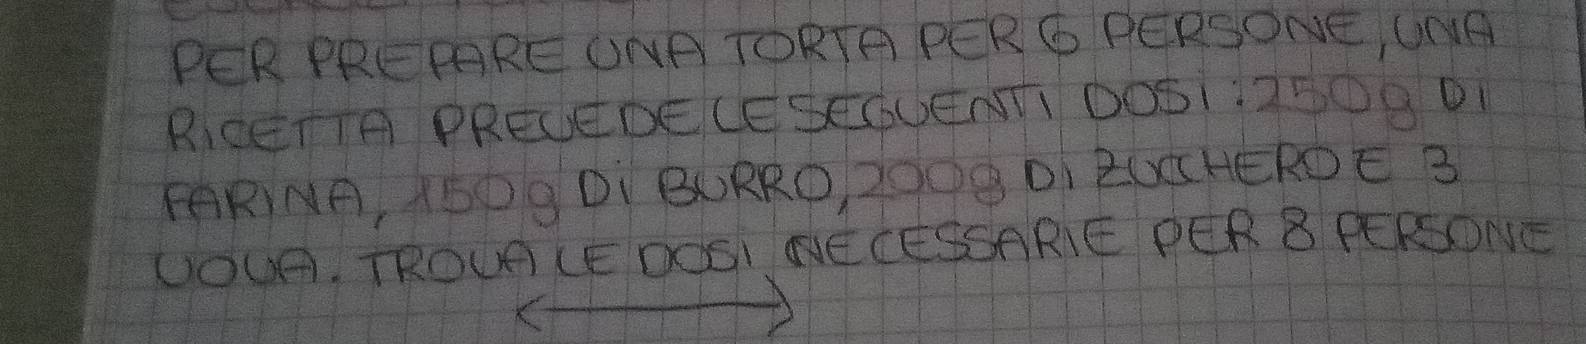 PER PREPARE UNA TORTA PER 6 PERSONE, UNA
RICETTA PREVEDE LE SEGUENTI DOSI: 250g Di
FARINA, 150g Di BURRO, 200g Di ZUCCHERO E 3
UOVA. TROVA LE DOSI NECESSARIE PER 8 PERSONE